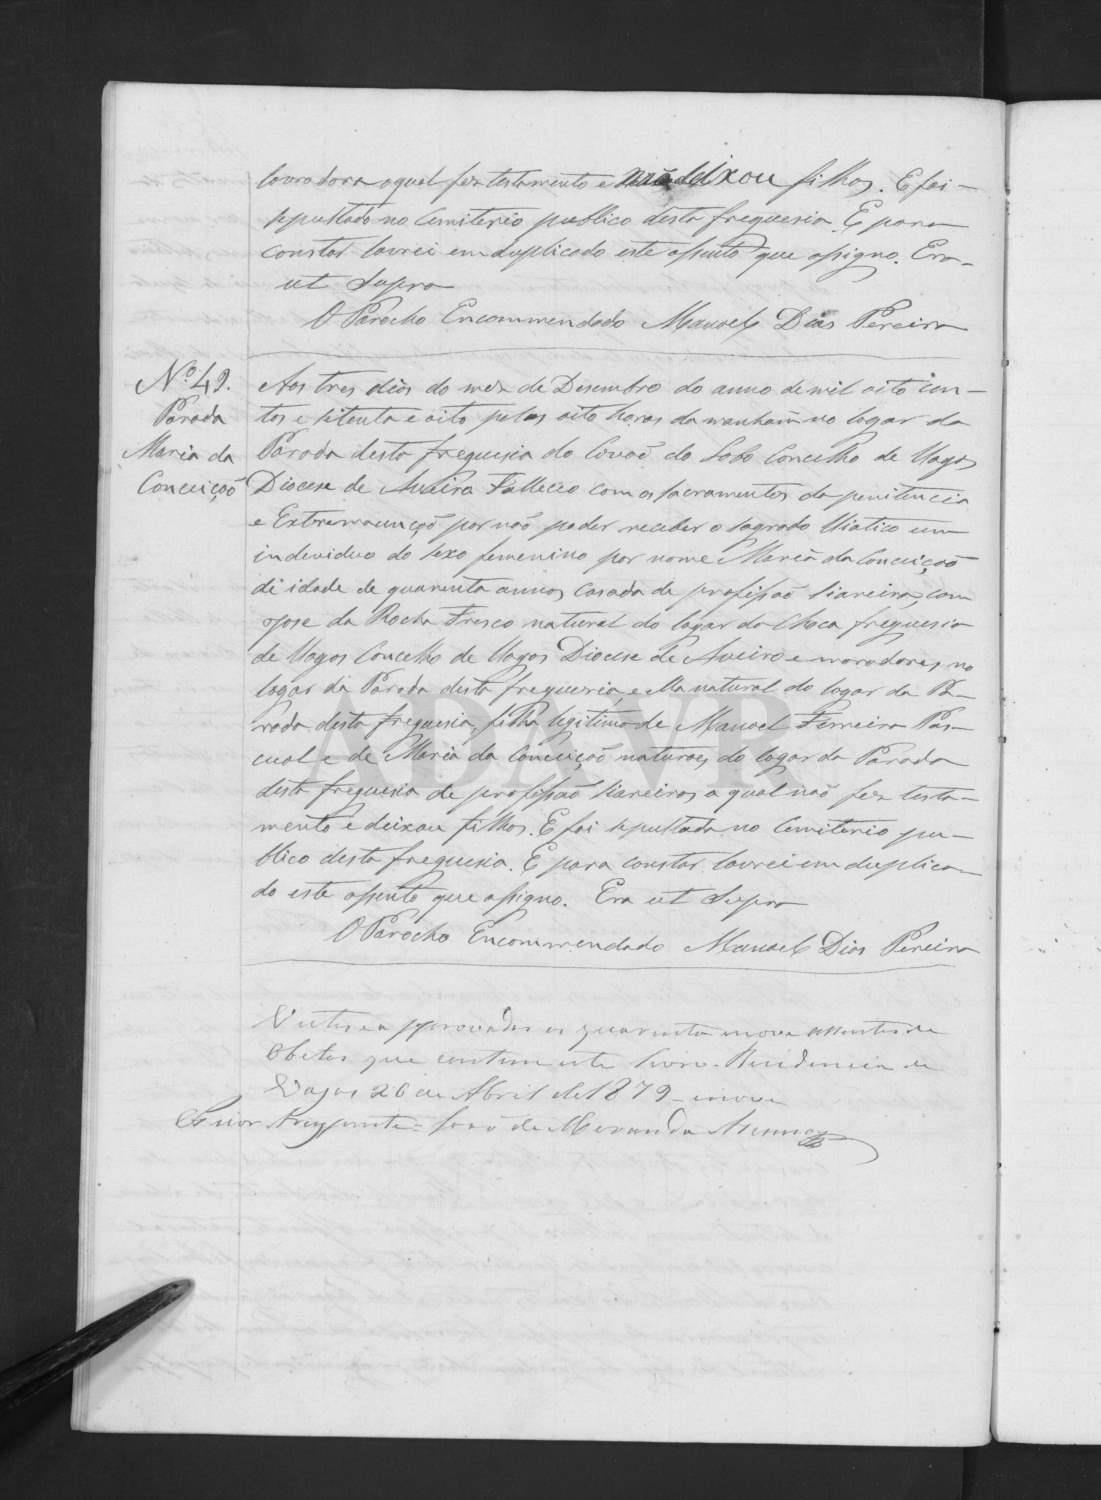 lavradora o qual fez testamento e não deixou filhos. E foi
sepultado no Cemiterio publico desta freguesia. E para
constar lavrei em duplicado este assento que assigno. Era
ut Supra
O Parocho Encommendado Manoel Dias Pereira
Nº 49.
Parada
Maria da
Conceição
Aos tres dias do mez de Desembro do anno de mil oito cen-
tos e setenta e oito pelas oito horas da manham no logar da
Parada desta freguesia do Covaõ do Lobo Concelho de Vagos
Diocese de Aveiro Falleceo com os sacramentos da penitencia
e Extremaunçaõ por naõ poder receber o sagrado Viatico um
individuo do sexo femenino por nome Maria da Conceiçaõ
de idade de quarenta annos casada de profissaõ siareira, com
Jose da Rocha Fresco natural do logar da Choca freguesia
de Vagos Concelho de Vagos Diocese de Aveiro e moradores no
logar da Parada desta freguesia, e Ella natural do logar da Pa-
rada desta freguesia, filha legitima de Manoel Ferreira Pas-
cual e de Maria da Conceiçaõ naturaes do logar da Parada
desta freguesia de profissaõ siareiros, a qual naõ fez testa-
mento e deixou filhos. E foi sepultada no Cemiterio pu-
blico desta freguesia. E para constar lavrei em duplica-
do este assento que assigno. Era ut Supra
O Parocho Encommendado Manoel Dias Pereira
Vistos e approvados os quarenta e nove assentos de
Obitos que contem este livro. Residencia de
Vagos 26 de Abril de 1879 - e nove
Prior Arcypreste = Joaõ de Miranda
ADAVR